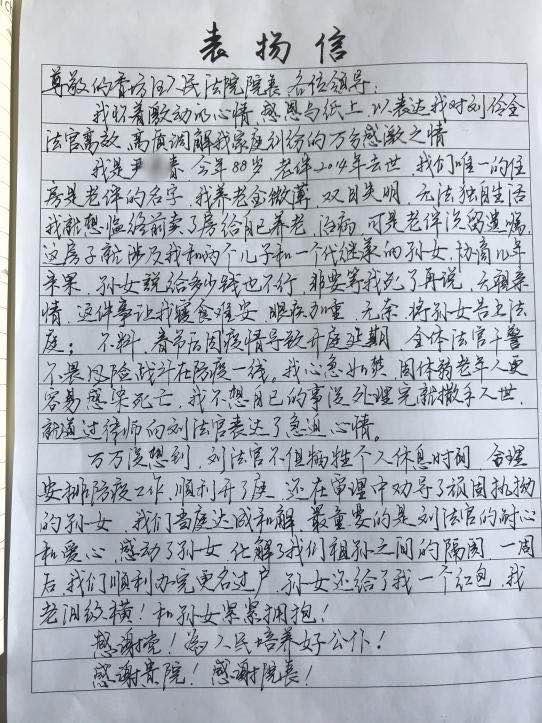 表扬信
尊敬的青坊区人民法院院长 各位领导:
我怀着激动的心情 感恩与纸上 以表达我对刘伶全
法官高效 高质调解我家庭纠纷的万分感激之情
我是尹 春 今年88岁 老伴2014年去世 我们唯一的住
房是老伴的名字, 我养老金微薄, 双目失明, 无法独自生活
我就想临终前卖了房给自己养老, 治病, 可是老伴没留遗嘱,
这房子就涉及我和两个儿子和一个代继承的孙女, 协商几年
未果, 孙女说给多少钱也不行, 非要等我死了再说, 无视亲
情, 这件事让我寝食难安 眼疾加重, 无奈, 将孙女告上法
庭; 不料, 春节后因疫情导致开庭延期, 全体法官干警
不畏风险战斗在防疫一线。我心急如焚 因体弱老年人更
容易感染死亡, 我不想自己的事没处理完就撒手人世,
就通过律师向刘法官表达了急迫心情。
万万没想到, 刘法官不但牺牲个人休息时间, 合理
安排防疫工作, 顺利开了庭, 还在审理中劝导了顽固执拗
的孙女, 我们当庭达成和解, 最重要的是刘法官的耐心
和爱心, 感动了孙女, 化解了我们祖孙之间的隔阂, 一周
后我们顺利办完更名过户, 孙女还给了我一个红包, 我
老泪纵横! 和孙女紧紧拥抱!
感谢党! 为人民培养好公仆!
感谢贵院! 感谢院长!